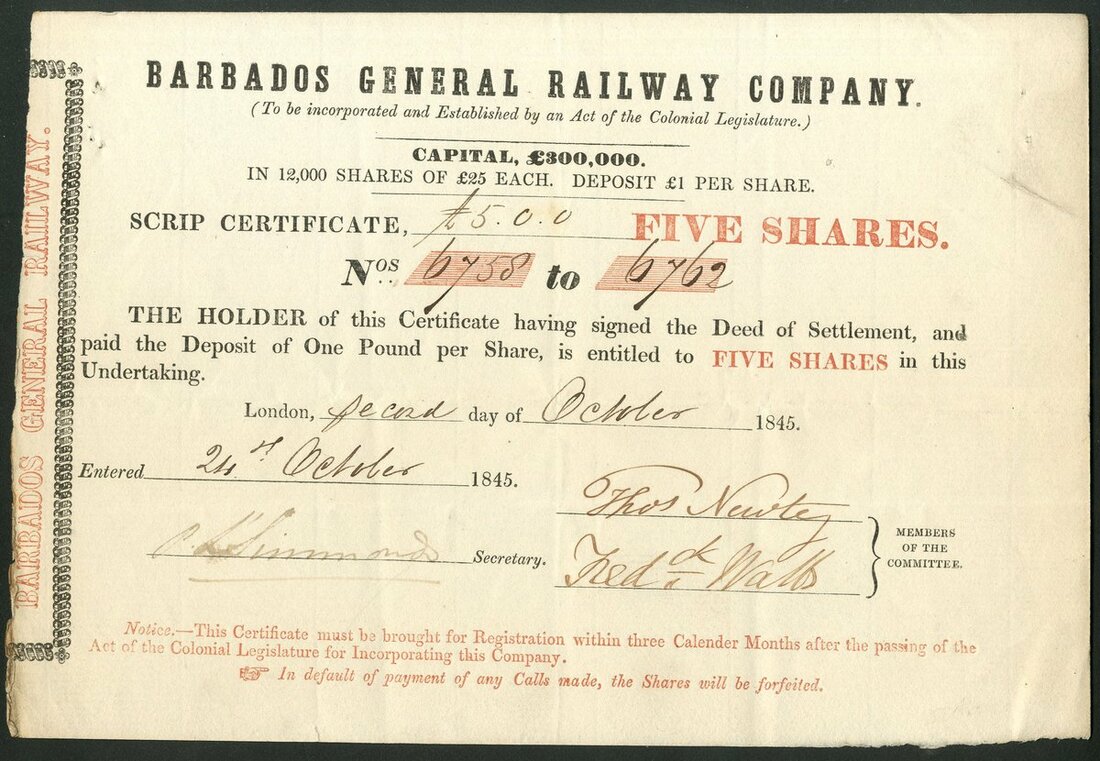 BARBADOS GENERAL RAILWAY.
BARBADOS GENERAL RAILWAY COMPANY.
(To be incorporated and Established by an Act of the Colonial Legislature.)
CAPITAL, £300,000.
IN 12,000 SHARES OF £25 EACH. DEPOSIT £1 PER SHARE.
SCRIP CERTIFICATE, £5.0.0 FIVE SHARES.
Nos 6758 to 6762
THE HOLDER of this Certificate having signed the Deed of Settlement, and
paid the Deposit of One Pound per Share, is entitled to FIVE SHARES in this
Undertaking.
London, second day of October 1845.
Entered October 1845.
Thos
Simmonds Secretary.
Fredk Watts
MEMBERS
OF THE
COMMITTEE.
Notice.—This Certificate must be brought for Registration within three Calender Months after the passing of the
Act of the Colonial Legislature for Incorporating this Company.
☞ In default of payment of any Calls made, the Shares will be forfeited.